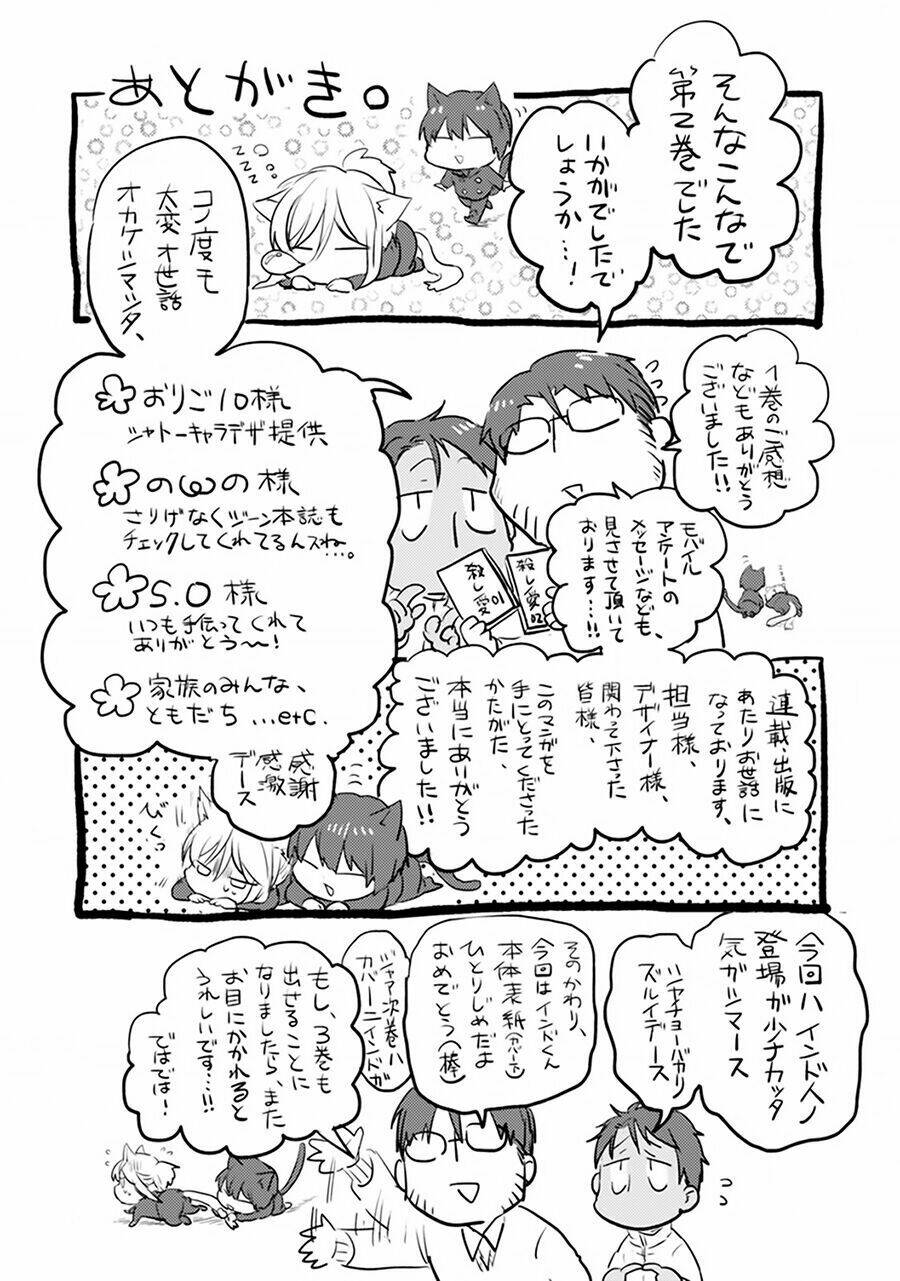 あとがき。
そんなこんなで
第2巻でした
いかがでしたで
しょうか…!
zzz
1巻のご感想
などもありがとう
ございました!!
モバイル
アンケートの
メッセージなども、
見させて頂いて
おります…!!
殺し愛01
殺し愛02
コノ度モ
大変オ世話
オカケシマシタ、
おりご10様
シャトーキャラデザ提供
のωの様
さりげなくジーン本誌も
チェックしてくれてるんスね…。
S.O様
いつも手伝ってくれて
ありがとう〜!
家族のみんな、
ともだち …etc.
連載・出版に
あたりお世話に
なっております、
担当様、
デザイナー様、
関わって下さった
皆様、
このマンガを
手にとってくださった
かたがた、
本当にありがとう
ございました!!
感謝
感激
デース
びくっ
今回ハインド人ノ
登場が少ナカッタ
気がシマース
ズルイデース
そのかわり、
今回はインドくん
本体表紙(カバー下)
ひとりじめだよ
おめでとう(棒)
ジャア次巻ハ
カバーニインドガ
もし、3巻も
出せることに
なりましたら、また
お目にかかれると
うれしいです…!!
ではでは!